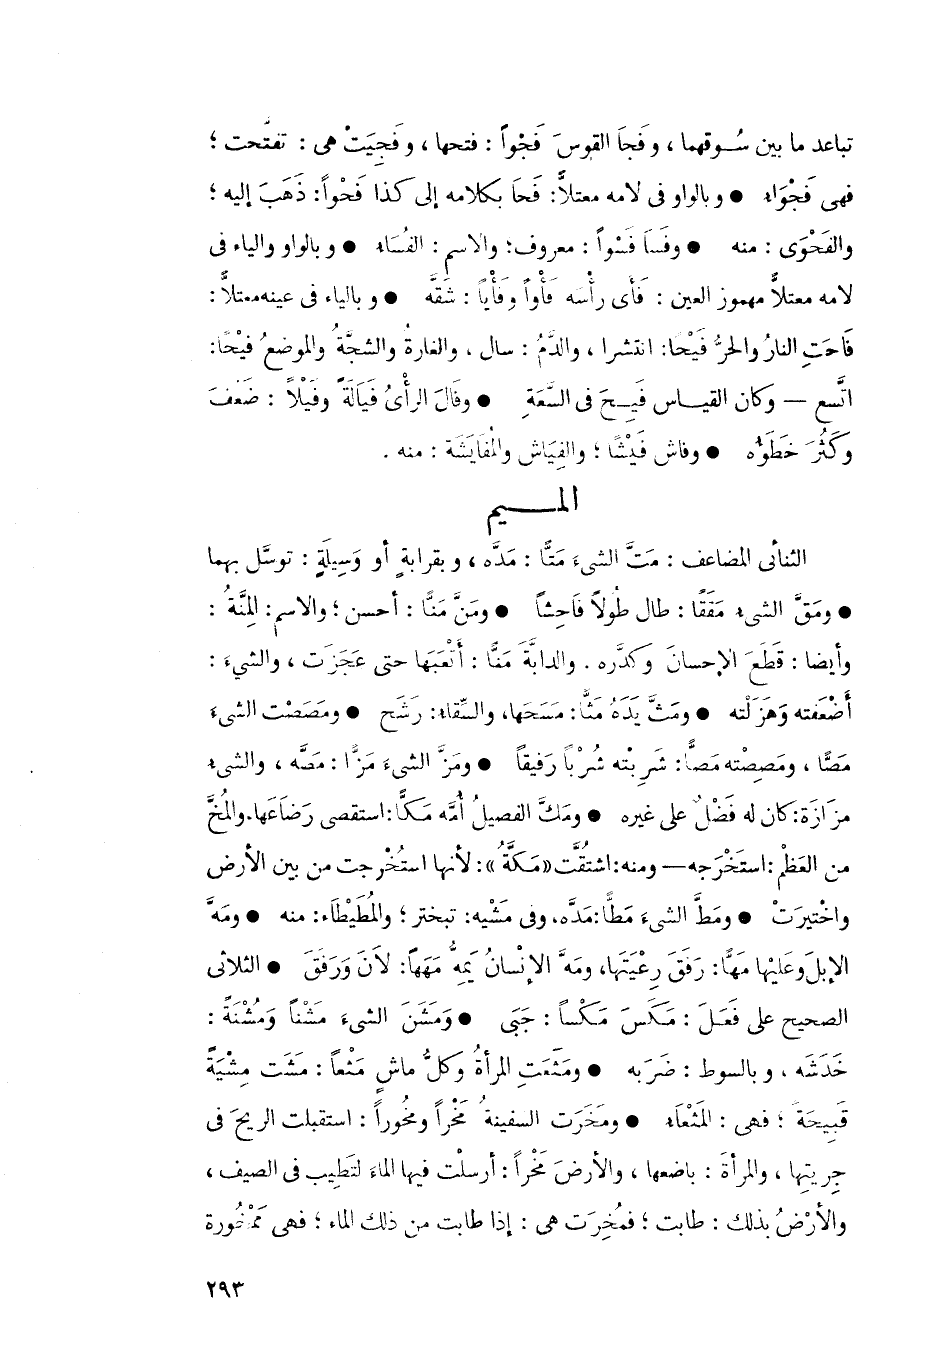 تباعد ما بين سُوقهما ، وفَجَا القوسَ فَجْواً : فتحها ، وفَجِيَتْ هى : تفتَّحت ؛
فهى فَجْوَاء ● وبالواو فى لامه معتلاًّ: فَحَا بكلامه إلى كذا فَحْواً: ذَهَبَ إليه ؛
والفَحْوَى : منه ● وفَسَا فَسْواً : معروف؛ والاسم : الفُسَاء ● وبالواو والياء فى
لامه معتلاًّ مهموز العين : فَأَى رأْسَه فَأْواً وفَأْياً : شَقَّه ● وبالياء فى عينه معتلاًّ :
فَاحَتِ النارُ والحرُّ فَيْحًا: انتشرا ، والدَّمُ : سال ، والغارةُ والشجَّةُ والموضعُ فيْحًا:
اتَّسع — وكان القياس فَيِحَ فى السَّعَةِ ● وفَالَ الرأْىُ فَيَالَةً وفَيْلاً : ضَعُفَ
وكَثُرَ خَطَؤه ● وفاش فَيْشًا ؛ والفِيَاش والمُفَايَشَة : منه .
الميم
الثنائى المضاعف : مَتَّ الشىءَ مَتًّا : مَدَّه ، وبقرابةٍ أو وَسِيلَةٍ : توسَّل بهما
● ومَقَّ الشىء مَقَقًا : طال طُولاً فَاحِشاً ● ومَنَّ مَنًّا : أحسن ؛ والاسم: المِنَّةُ :
وأيضا : قَطَعَ الإحسانَ وكدَّره . والدابَّةَ مَنًّا : أَتْعَبَهَا حتى عَجَزَت ، والشىءَ :
أضْعَفته وَهَزَلْته ● ومَثَّ يَدَهُ مَثًّا: مَسَحَها، والسِّقاء: رَشَح ● ومَصَصْت الشىءَ
مَصًّا ، ومَصِصْته مَصًّا: شَرِبْته شُرْباً رَفيقاً ● ومَزَّ الشىءَ مَزًّا : مَصَّه ، والشىء
مزَازَة: كان له فَضْلٌ على غيره ● ومَكَّ الفصيلُ أُمَّه مَكًّا: استقصى رَضَاعَها. والمُخَّ
من العَظْم : استَخْرَجه— ومنه: اشتقَّت «مَكَّةُ»: لأنها استُخْرجت من بين الأرض
واخْتيرَتْ ● ومَطَّ الشىءَ مَطًّا: مَدَّه، وفى مَشْيه: تبختر ؛ والمُطَيْطَاء: منه ● ومَهَّ
الإبلَ وعَليْها مَهًّا: رَفَقَ رِعْيَتَها، ومَهَّ الإنْسانُ يَمِهُّ مَهَهًا: لاَنَ وَرَفَقَ ● الثلاثى
الصحيح على فَعَلَ : مَكَسَ مَكْساً : جَبَى ● وَمَشَنَ الشىءَ مَشْناً وَمُشْنَةً :
خَدَشَه ، وبالسوط : ضَرَبه ● ومَثَعَتِ المرأةُ وكلُّ ماشٍ مَثْعاً : مشَت مِشْيَةً
قَبِيحَة ؛ فهى : المَثْعَاء ● ومخَرَت السفينةُ مَخْراً ومخُوراً : استقبلت الريحَ فى
جِريتِها ، والمرأةَ : باضعها ، والأرضَ مَخْراً : أرسلْت فيها الماءَ لتَطِيب فى الصيف ،
والأرْضُ بذلك : طابت ؛ فمُخِرَت هى : إذا طابت من ذلك الماء ؛ فهى مَمْخُورة
٢٩٣